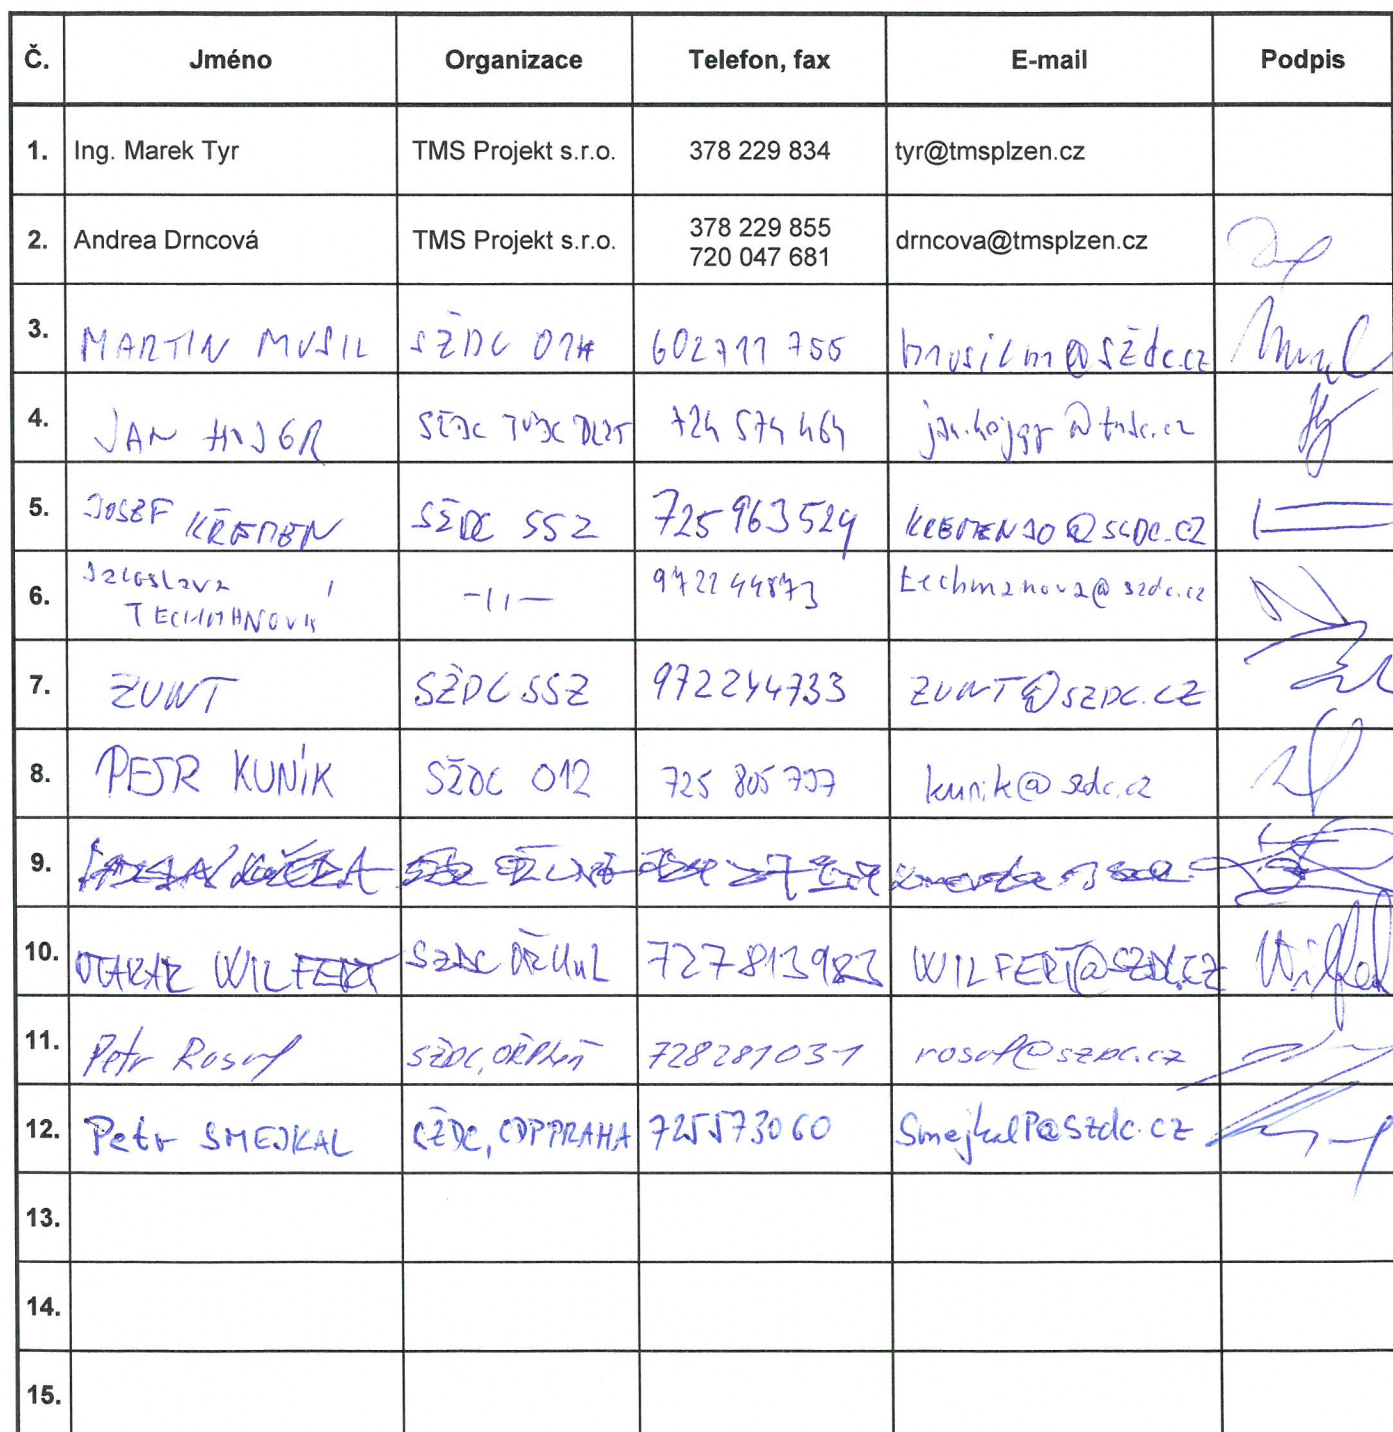 Č. Jméno Organizace Telefon, fax E-mail Podpis
1. Ing. Marek Tyr TMS Projekt s.r.o. 378 229 834 tyr@tmsplzen.cz
2. Andrea Drncová TMS Projekt s.r.o. 378 229 855 drncova@tmsplzen.cz
720 047 681
3. MARTIN MUSIL SŽDC 602 711 755 musilm@szdc.cz
4. JAN SŽDC 724 574 464
5. JOSEF KŘEMEN SŽDC SSZ 725 963 529 KREMENJO@SZDC.CZ
6. Jaroslava -11- 972244873 techmanova@szdc.cz
TECHMANOVÁ
7. ZUNT SŽDC SSZ 972244733 ZUNT@SZDC.CZ
8. PETR KUNÍK SŽDC 012 725 805 797 kunik@szdc.cz
9.
10. OTAKAR WILFERT SŽDC OŘ UnL 727813983 WILFERT@SZDC.CZ Wilfert
11. Petr SŽDC, OŘ Plzeň 728281031
12. Petr SMEJKAL SŽDC, CDP PRAHA 725573060 SmejkalP@szdc.cz
13.
14.
15.